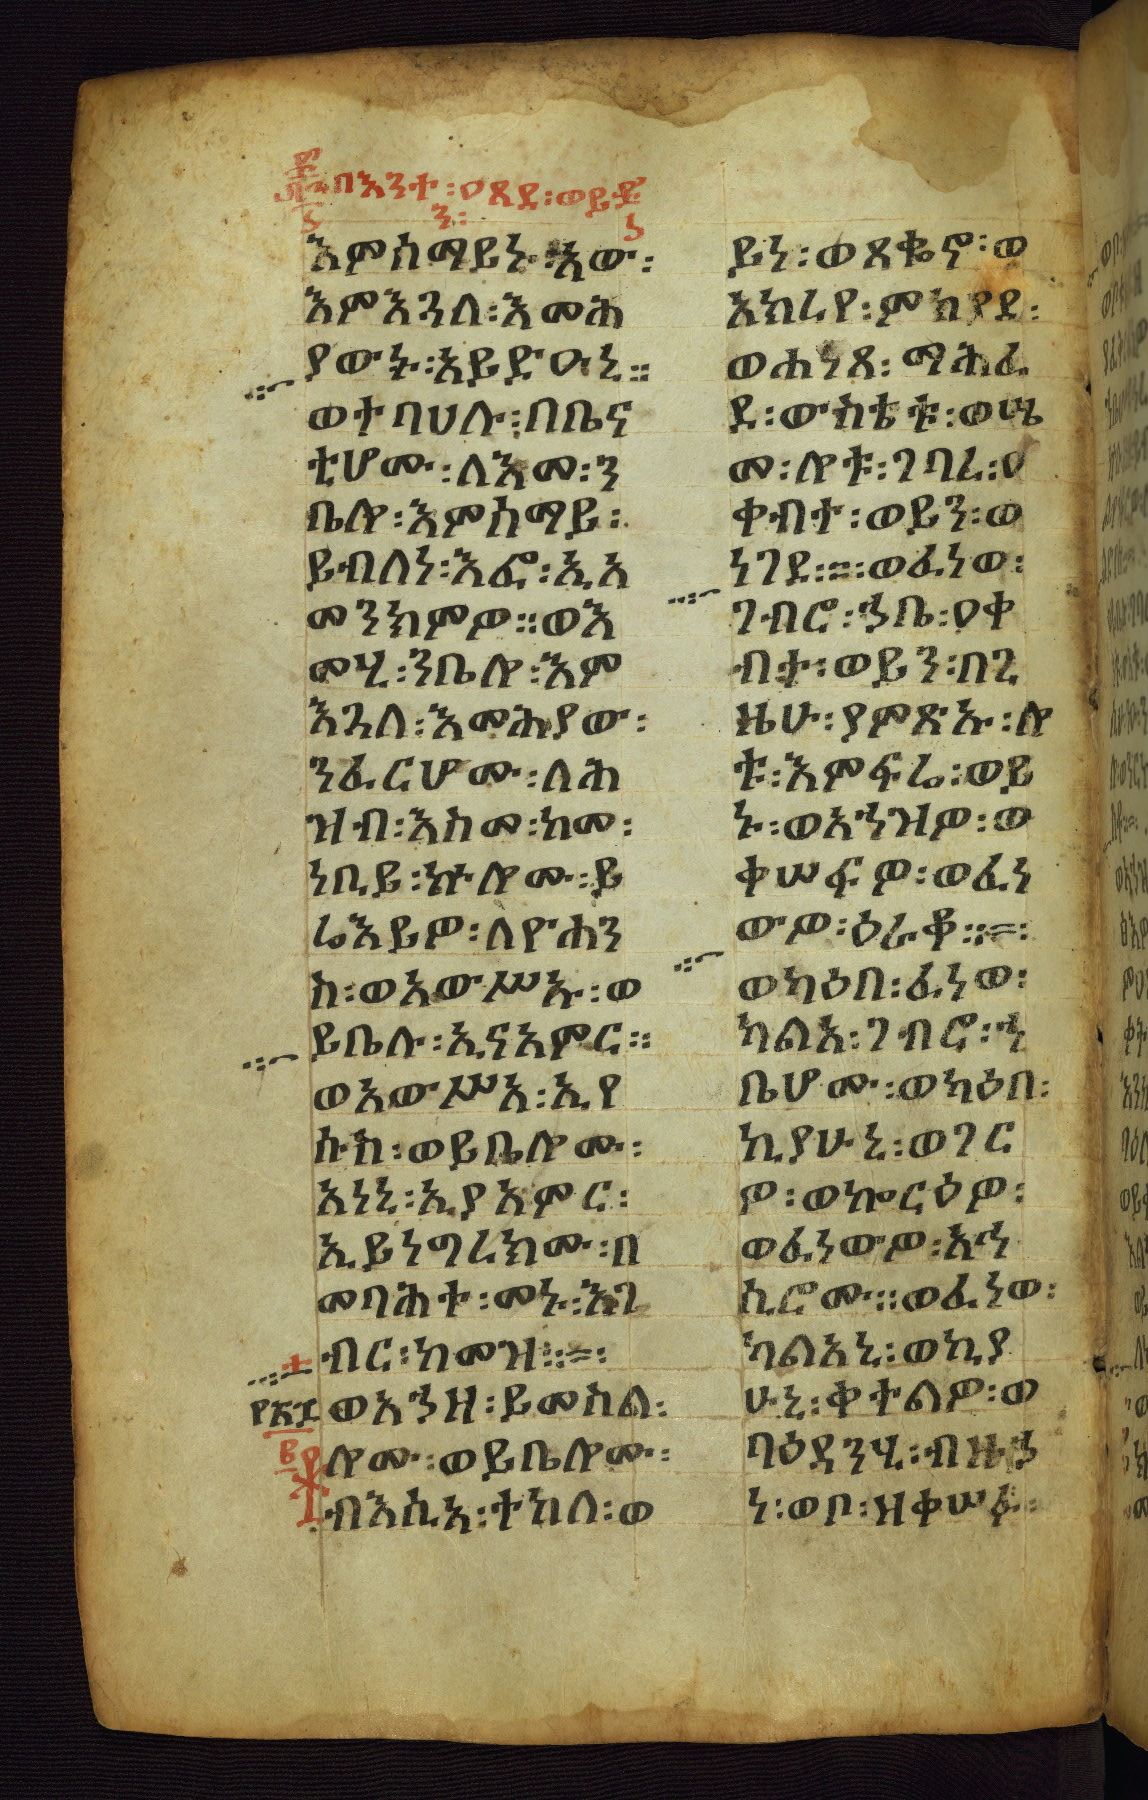 በእንተ፡ዐጸደ፡ወይ
ን፡
እምሰማይኑ፡አው፡
እምእጓለ፡እመሕ
ያውኑ፡አይድዑኒ።
ወተባህሉ፡በቤና
ቲሆሙ፡ለእመ፡ን
ቤሎ፡እምሰማይ፡
ይብለነ፡እፎ፡ኢአ
መንክምዎ።ወእ
መሂ፡ንቤሎ፡እም
እጓለ፡እመሕያው፡
ንፈርሆሙ፡ለሕ
ዝብ፡እስመ፡ከመ፡
ነቢይ፡ኵሎሙ፡ይ
ሬእይዎ፡ለዮሐን
ስ፡ወአውሥኡ፡ወ
ይቤሉ፡ኢናአምር።
ወአውሥአ፡ኢየ
ሱስ፡ወይቤሎሙ፡
አነኒ፡ኢያአምር፡
ኢይነግረክሙ፡በ
መባሕተ፡መኑ፡እገ
ብር፡ከመዝ።=፡
ወአኀዘ፡ይመስል፡
ሎሙ፡ወይቤሎሙ፡
ብእሲአ፡ተከለ፡ወ
ይነ፡ወጸቈኖ፡ወ
አክረየ፡ምክያደ፡
ወሐነጸ፡ማሕፈ
ደ፡ውስቴቱ፡ወሤ
መ፡ሎቱ፡ገባረ፡ዐ
ቀብተ፡ወይን፡ወ
ነገደ፡=፡ወፈነወ፡
ገብሮ፡ኀቤ፡ዐቀ
ብተ፡ወይን፡በጊ
ዜሁ፡ያምጽኡ፡ሎ
ቱ፡እምፍሬ፡ወይ
ኑ፡ወአኀዝዎ፡ወ
ቀሠፍዎ፡ወፈነ
ውዎ፡ዕራቆ።=፡
ወካዕበ፡ፈነወ፡
ካልአ፡ገብሮ፡ኀ
ቤሆሙ፡ወካዕበ፡
ኪያሁኒ፡ወገር
ዎ፡ወኰርዕዎ፡
ወፈነውዎ፡አኀ
ሲሮሙ።ወፈነወ፡
ካልአኒ፡ወኪያ
ሁኒ፡ቀተልዎ፡ወ
ባዕዳንሂ፡ብዙኃ
ነ፡ወቦ፡ዝቀሠፉ፡